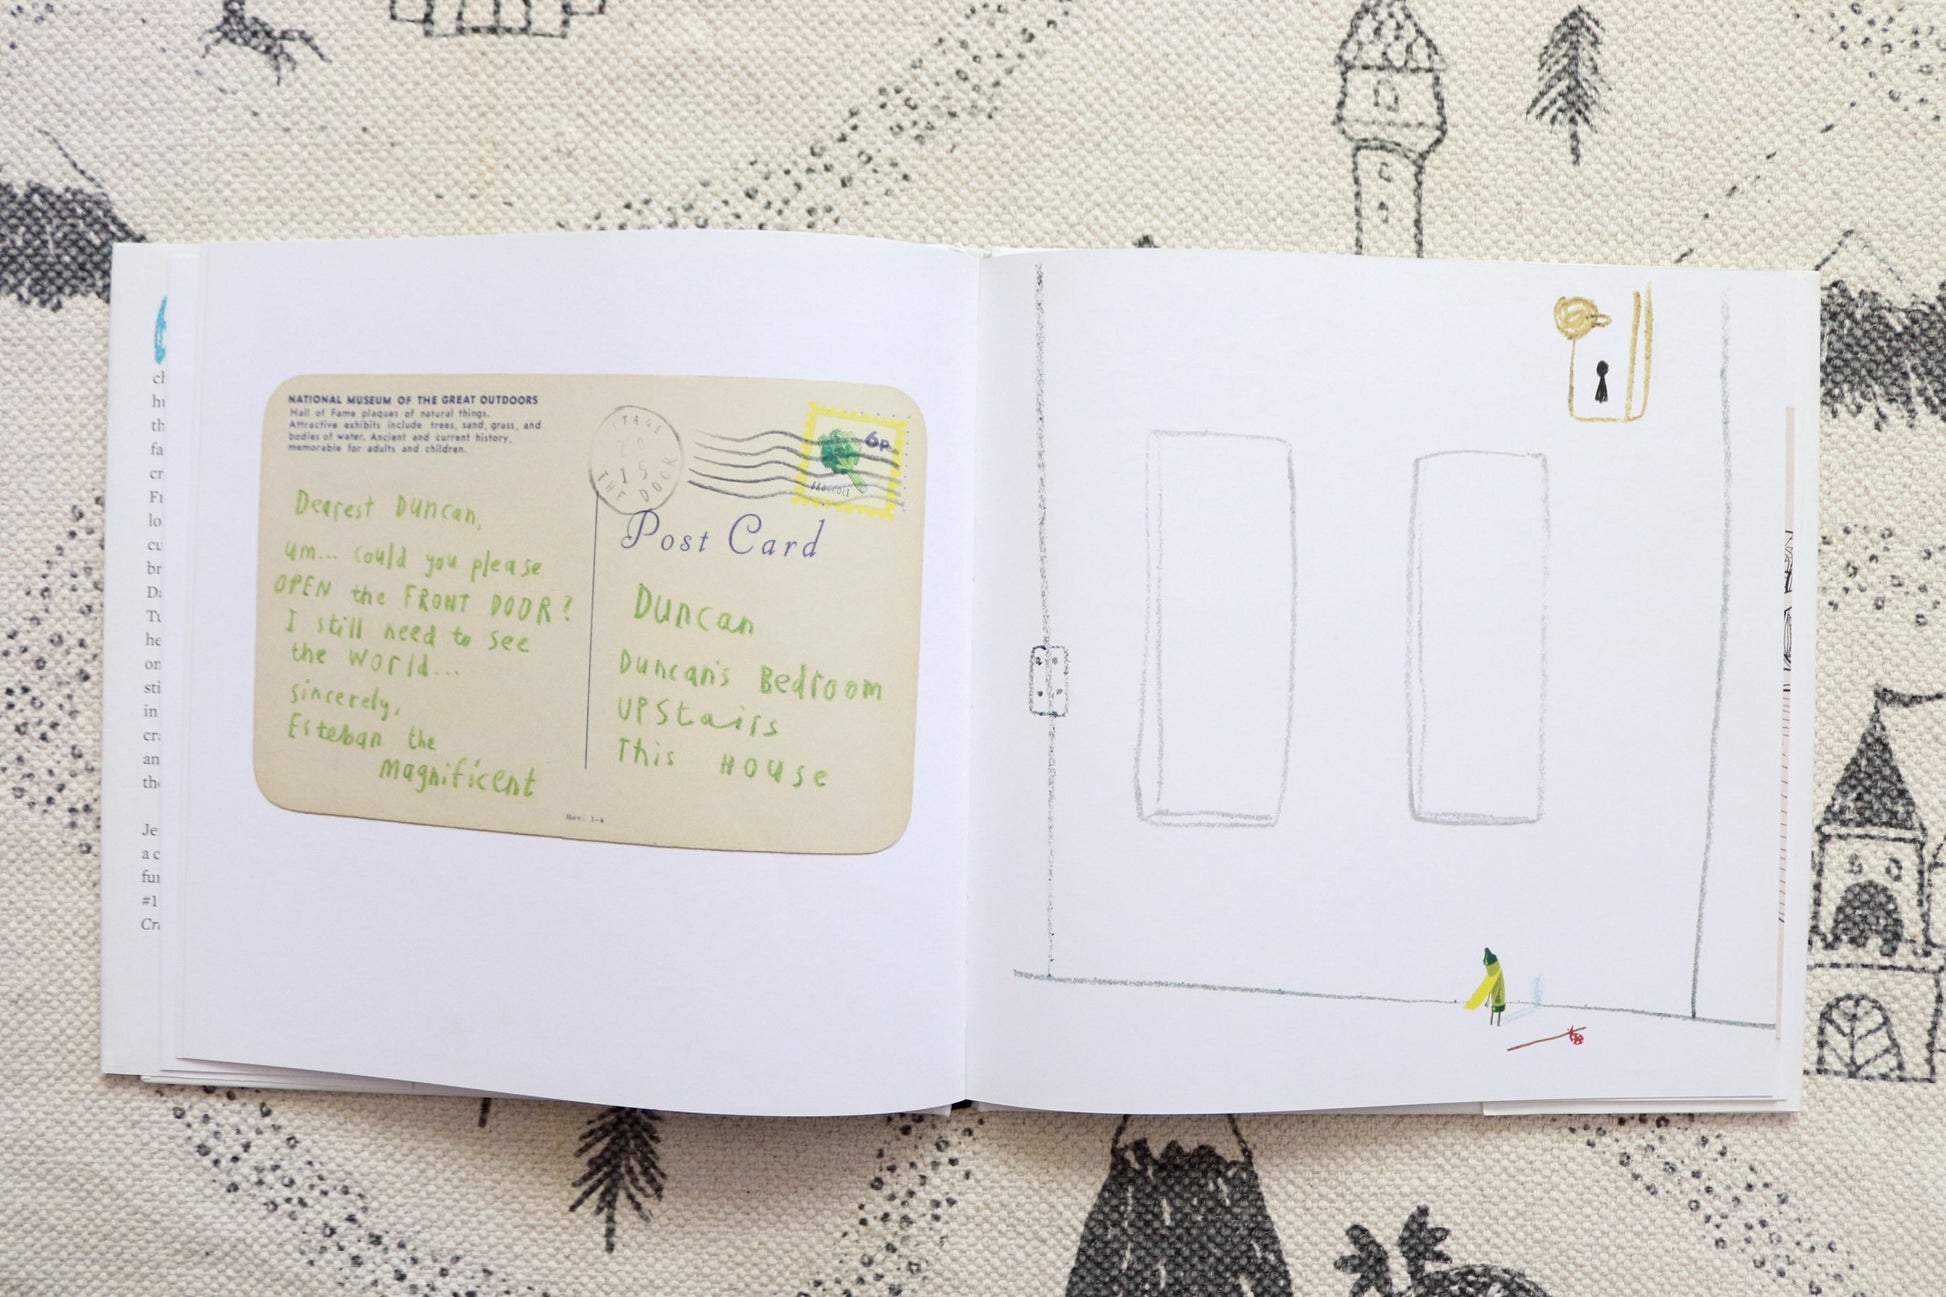 NATIONAL MUSEUM OF THE GREAT OUTDOORS
Hall of Fame plaques of natural things.
Attractive exhibits include trees, sand, grass, and
bodies of water. Ancient and current history,
memorable for adults and children.
Dearest Duncan,
um... could you please
OPEN the FRONT DOOR?
I still need to see
the world...
sincerely,
Esteban the
magnificent
15
THE DOOR
6p
BROCCOLI
Post Card
Duncan
Duncan's Bedroom
UPStairs
This HOUSE
Rev. 1-4
Je
a c
fu
#1